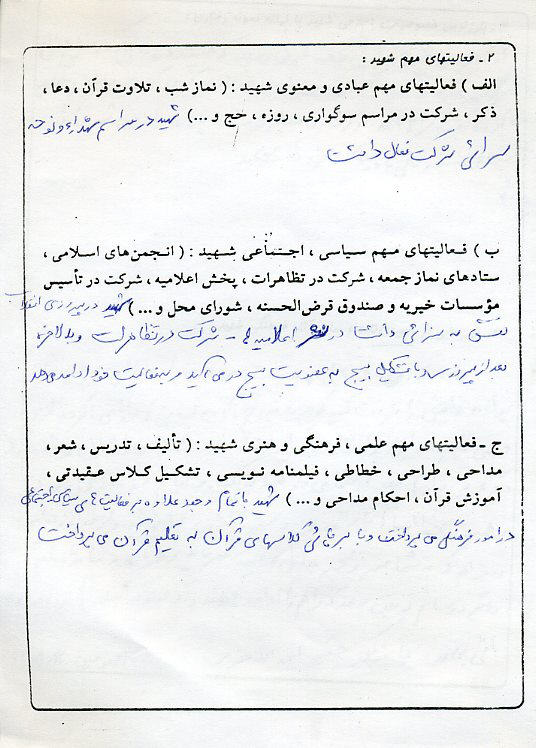 ۲ - فعالیتهای مهم شهید :
الف ) فعالیتهای مهم عبادی و معنوی شهید : ( نماز شب ، تلاوت قرآن ، دعا ،
ذکر ، شرکت در مراسم سوگواری ، روزه ، حج و ...) شهید در مراسم شهداء و نوحه
سرائی شرکت فعال داشت
ب ) فعالیتهای مهم سیاسی ، اجتماعی شهید : ( انجمن‌های اسلامی ،
ستادهای نماز جمعه ، شرکت در تظاهرات ، پخش اعلامیه ، شرکت در تأسیس
مؤسسات خیریه و صندوق قرض‌الحسنه ، شورای محل و ...) شهید در پیروزی انقلاب
نقش به سزائی داشت در نشر اعلامیه ها - شرکت در تظاهرات و بلاخره
بعد از پیروزی با تشکیل بسیج به عضویت بسیج در می آید و به فعالیت خود ادامه می دهد
ج - فعالیتهای مهم علمی ، فرهنگی و هنری شهید : ( تألیف ، تدریس ، شعر ،
مداحی ، طراحی ، خطاطی ، فیلمنامه نویسی ، تشکیل کلاس عقیدتی ،
آموزش قرآن ، احکام مداحی و ...) شهید با تمام وجود علاوه بر فعالیت های سیاسی اجتماعی
در امور فرهنگی می پرداخت و با برپائی کلاسهای قرآن به تعلیم قرآن می پرداخت